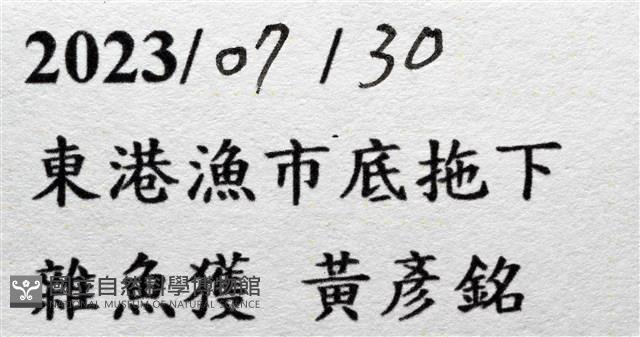 2023/07/30
東港漁市底拖下
雜魚獲 黃彥銘
國立自然科學博物館
NATIONAL MUSEUM OF NATURAL SCIENCE